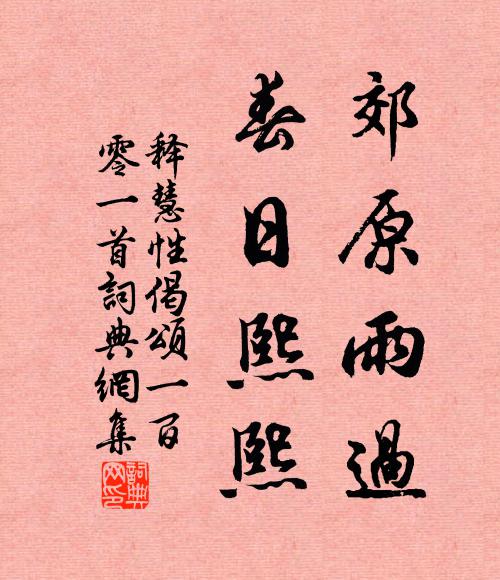 郊原雨過
春日熙熙
释慧性偈頌一百
零一首詞典網集
詞典网印